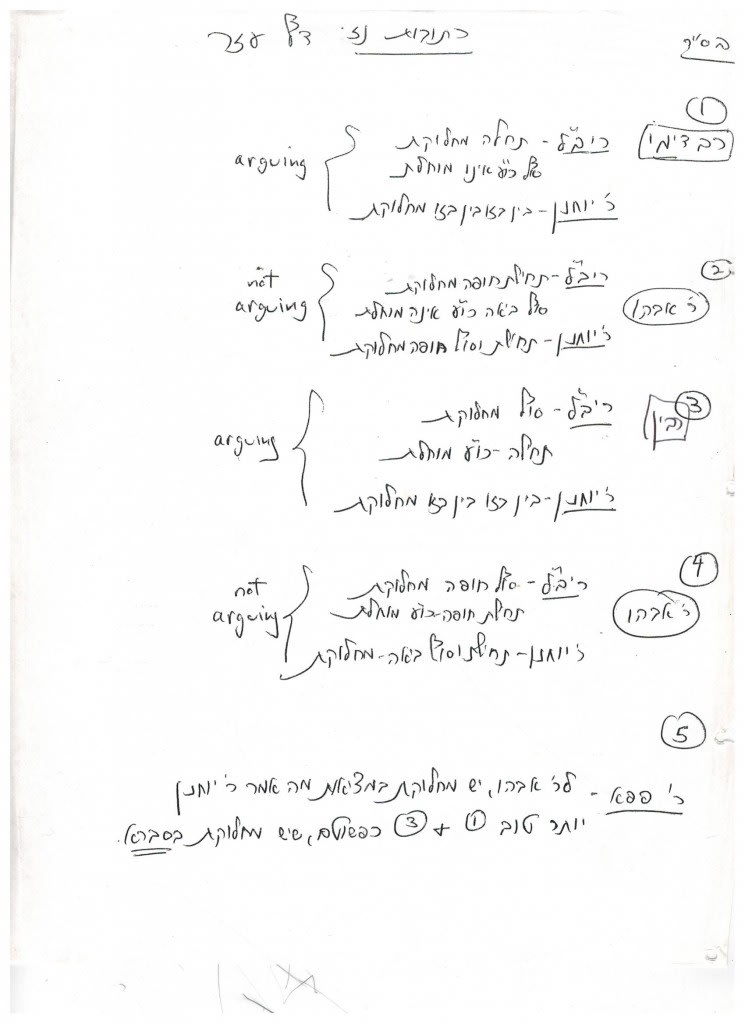 בס"ד
כתובות נז: דף עזר
①
רב דימי
ריב"ל - תחלה מחלוקת
אבל כו"ע אינו מוחלת
ר' יוחנן - בין בזו בין בזו מחלוקת
arguing
②
ר' אבהו
ריב"ל - תחילת חופה מחלוקת
סוף ביאה כו"ע אינה מוחלת
ר' יוחנן - תחילת וסוף חופה מחלוקת
not
arguing
③
רבין
ריב"ל - סוף מחלוקת
תחילה - כו"ע מוחלת
ר' יוחנן - בין בזו בין בזו מחלוקת
arguing
④
ר' אבהו
ריב"ל - סוף חופה מחלוקת
תחילת חופה - כו"ע מוחלת
ר' יוחנן - תחילת וסוף ביאה - מחלוקת
not
arguing
⑤
ר' פפא - לר' אבהו, יש מחלוקת במציאות מה אמר ר' יוחנן
יותר טוב ① + ③ כפשוטם, שיש מחלוקת בסברא.